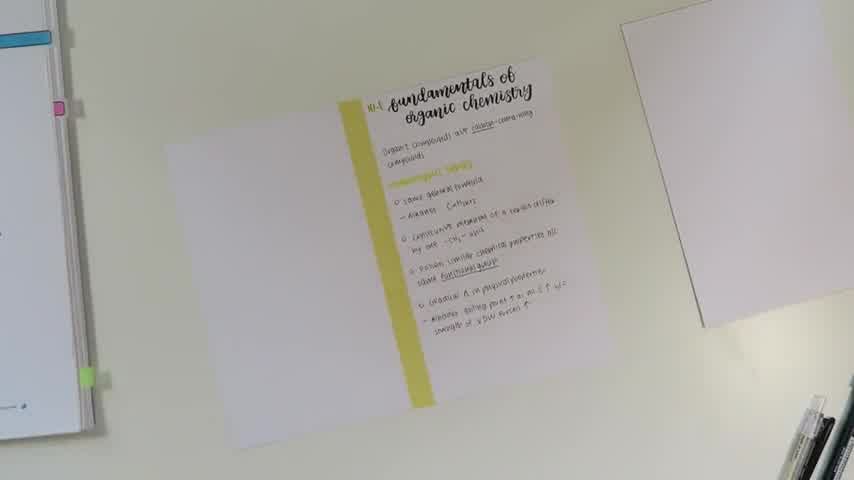 10.1 fundamentals of
organic chemistry
organic compounds are carbon-containing
compounds
homologous series
same general formula
- Alkanes
consecutive members of a series differ
by one -CH₂- unit
similar chemical properties b/c
same functional group
Gradual Δ in physical properties
- Alkanes boiling point ↑ as no. C ↑ b/c
strength of VDW forces ↑